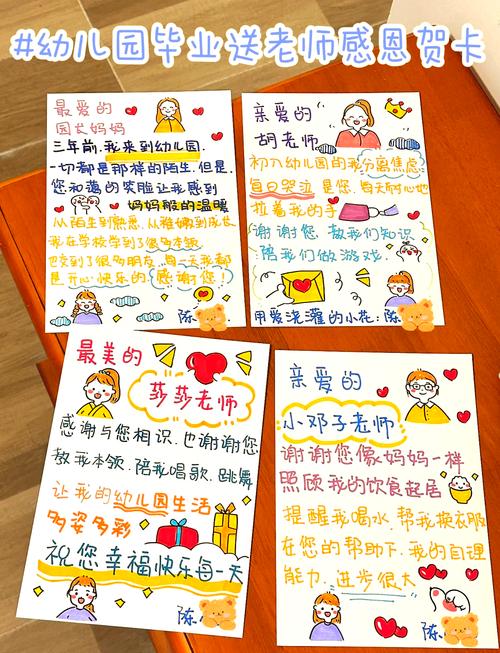 #幼儿园毕业送老师感恩贺卡
最爱的
园长妈妈
三年前,我来到幼儿园,
一切都是那样的陌生,但是,
您和蔼的笑脸让我感到
妈妈般的温暖
从陌生到熟悉,从稚嫩到成长
我在学校学到了很多本领
也交到了很多朋友,每一天我都
是开心快乐的 感谢您!
陈
亲爱的
胡老师
初入幼儿园的我分离焦虑
每日哭泣 是您,每天耐心地
拉着我的手
谢谢您 教我们知识
陪我们做游戏
用爱浇灌的小花:陈
最美的
莎莎老师
感谢与您相识,也谢谢您
教我本领,陪我唱歌,跳舞
让我的幼儿园生活
多姿多彩
祝您幸福快乐每一天
陈
亲爱的
小邓子老师
谢谢您像妈妈一样
照顾我的饮食起居
提醒我喝水,帮我换衣服
在您的帮助下,我的自理
能力,进步很大
陈